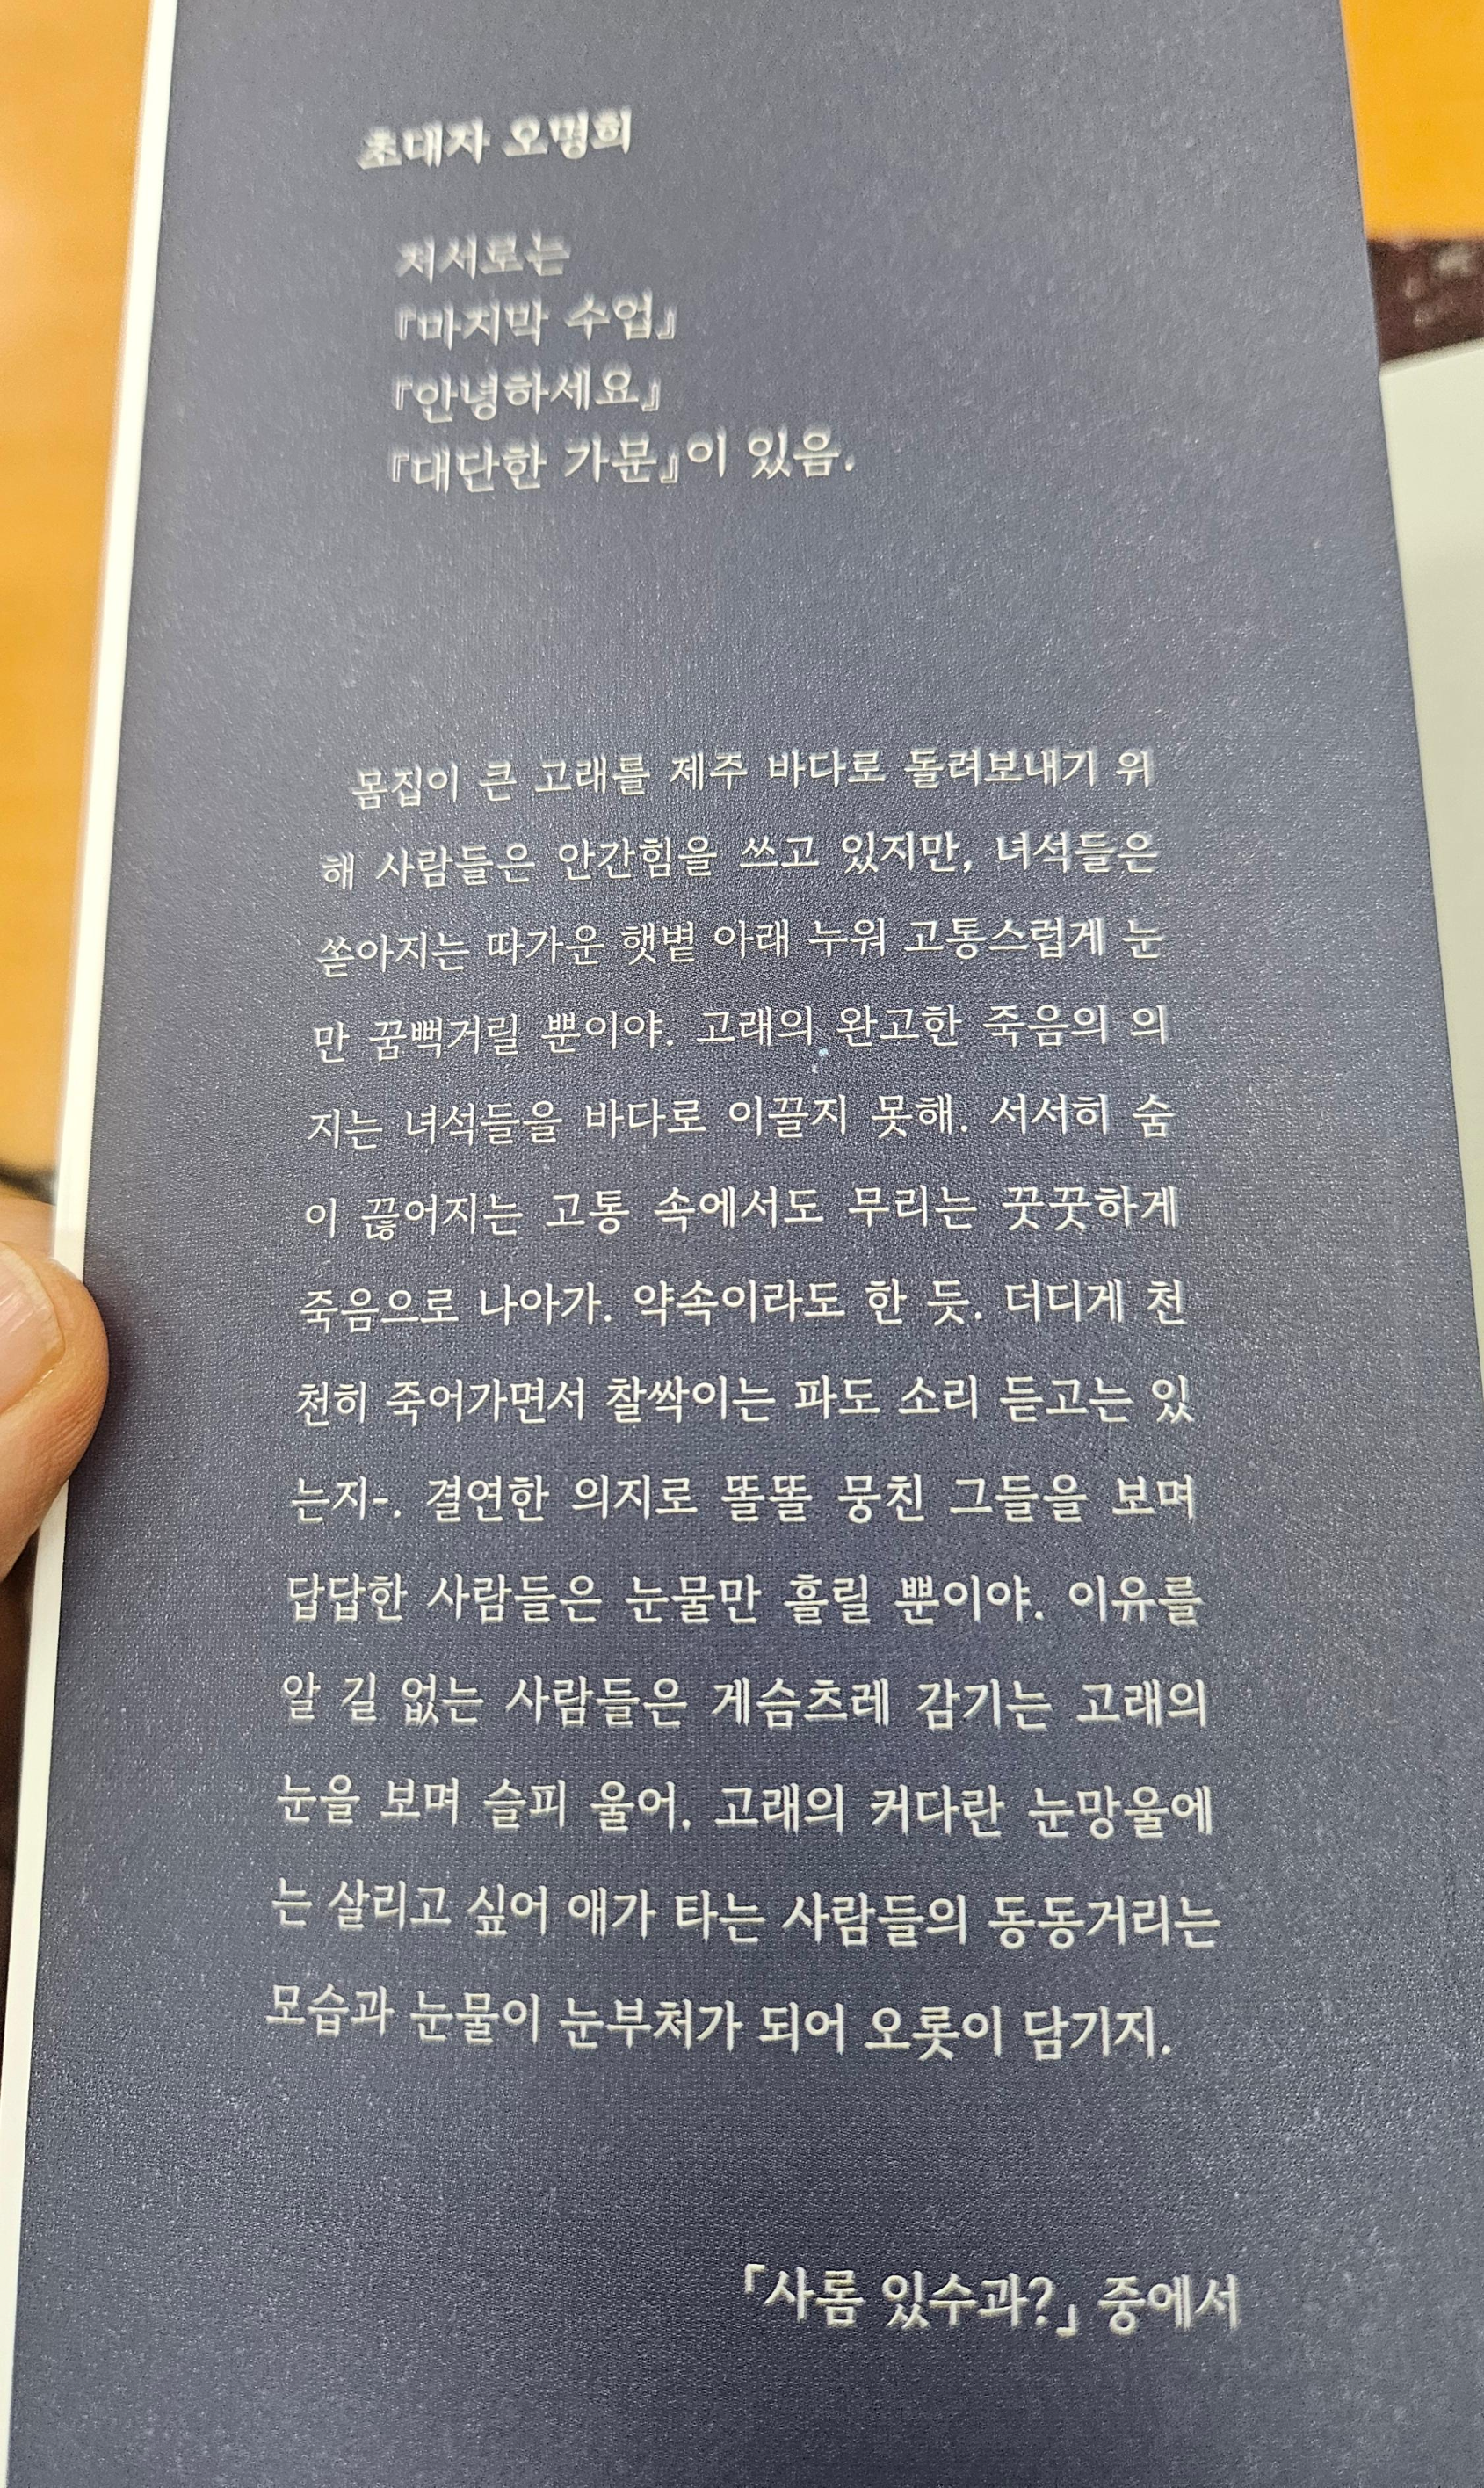 초대자 오명희
저서로는
『마지막 수업』
『안녕하세요』
『대단한 가문』이 있음.
몸집이 큰 고래를 제주 바다로 돌려보내기 위
해 사람들은 안간힘을 쓰고 있지만, 녀석들은
쏟아지는 따가운 햇볕 아래 누워 고통스럽게 눈
만 꿈뻑거릴 뿐이야. 고래의 완고한 죽음의 의
지는 녀석들을 바다로 이끌지 못해. 서서히 숨
이 끊어지는 고통 속에서도 무리는 꿋꿋하게
죽음으로 나아가. 약속이라도 한 듯. 더디게 천
천히 죽어가면서 찰싹이는 파도 소리 듣고는 있
는지-. 결연한 의지로 똘똘 뭉친 그들을 보며
답답한 사람들은 눈물만 흘릴 뿐이야. 이유를
알 길 없는 사람들은 게슴츠레 감기는 고래의
눈을 보며 슬피 울어. 고래의 커다란 눈망울에
는 살리고 싶어 애가 타는 사람들의 동동거리는
모습과 눈물이 눈부처가 되어 오롯이 담기지.
「사롬 있수과?」 중에서